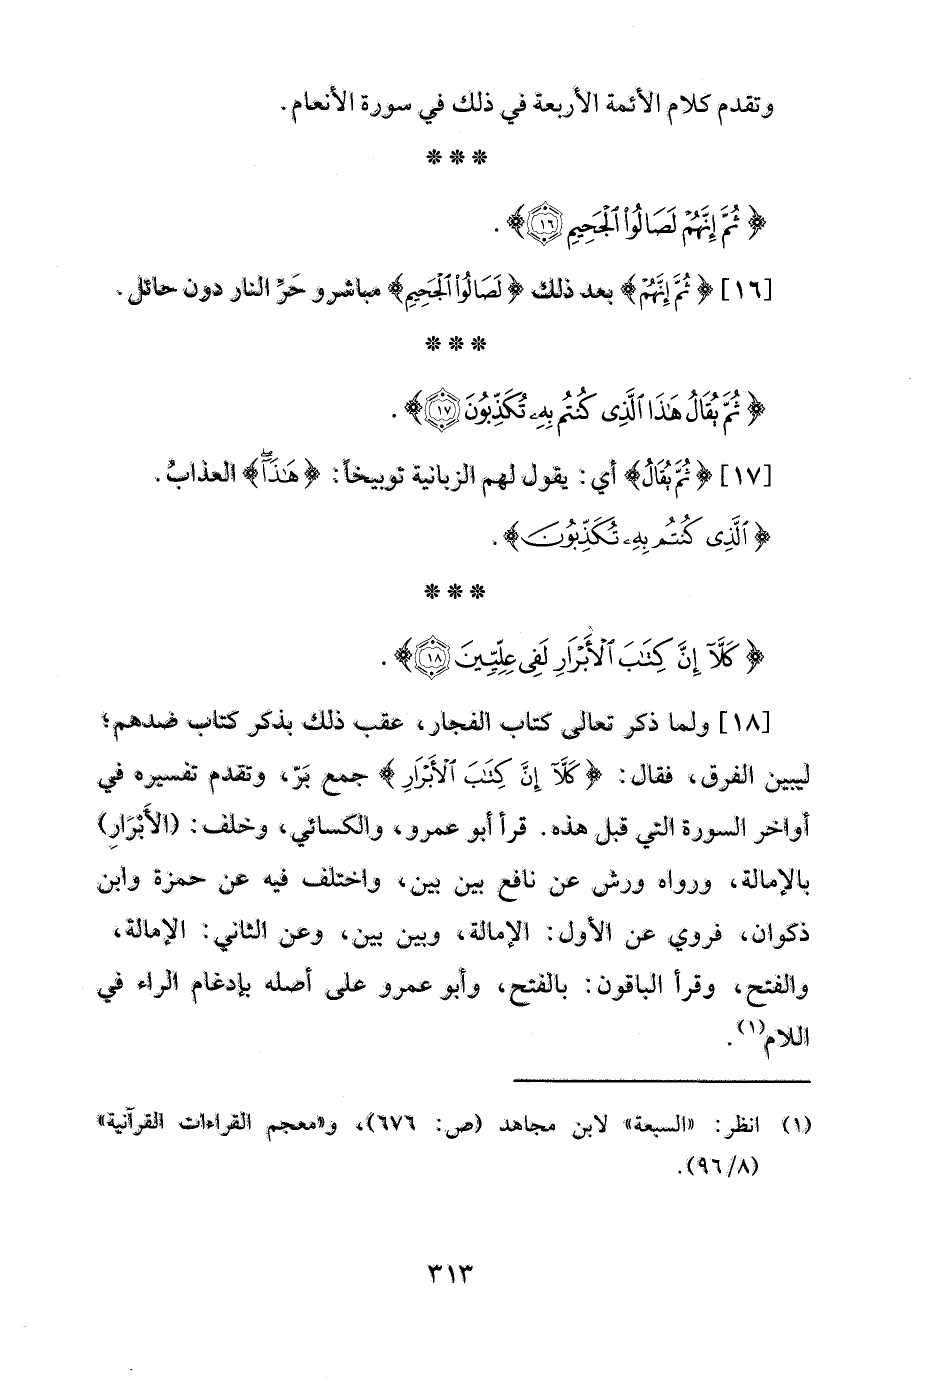 وتقدم كلام الأئمة الأربعة في ذلك في سورة الأنعام.
* * *
﴿ثُمَّ إِنَّهُمْ لَصَالُوا۟ ٱلْجَحِيمِ ١٦﴾.
[١٦] ﴿ثُمَّ إِنَّهُمْ﴾ بعد ذلك ﴿لَصَالُوا۟ ٱلْجَحِيمِ﴾ مباشرو حَرِّ النار دون حائل.
* * *
﴿ثُمَّ يُقَالُ هَٰذَا ٱلَّذِى كُنتُم بِهِۦ تُكَذِّبُونَ ١٧﴾.
[١٧] ﴿ثُمَّ يُقَالُ﴾ أي: يقول لهم الزبانية توبيخاً: ﴿هَٰذَا﴾ العذابُ.
﴿ٱلَّذِى كُنتُم بِهِۦ تُكَذِّبُونَ﴾.
* * *
﴿كَلَّآ إِنَّ كِتَٰبَ ٱلْأَبْرَارِ لَفِى عِلِّيِّينَ ١٨﴾.
[١٨] ولما ذكر تعالى كتاب الفجار، عقب ذلك بذكر كتاب ضدهم؛
ليبين الفرق، فقال: ﴿كَلَّآ إِنَّ كِتَٰبَ ٱلْأَبْرَارِ﴾ جمع بَرّ، وتقدم تفسيره في
أواخر السورة التي قبل هذه. قرأ أبو عمرو، والكسائي، وخلف: (الأَبْرَارِ)
بالإمالة، ورواه ورش عن نافع بين بين، واختلف فيه عن حمزة وابن
ذكوان، فروي عن الأول: الإمالة، وبين بين، وعن الثاني: الإمالة،
والفتح، وقرأ الباقون: بالفتح، وأبو عمرو على أصله بإدغام الراء في
اللام(١).
(١) انظر: «السبعة» لابن مجاهد (ص: ٦٧٦)، و«معجم القراءات القرآنية»
(٩٦/٨).
٣١٣